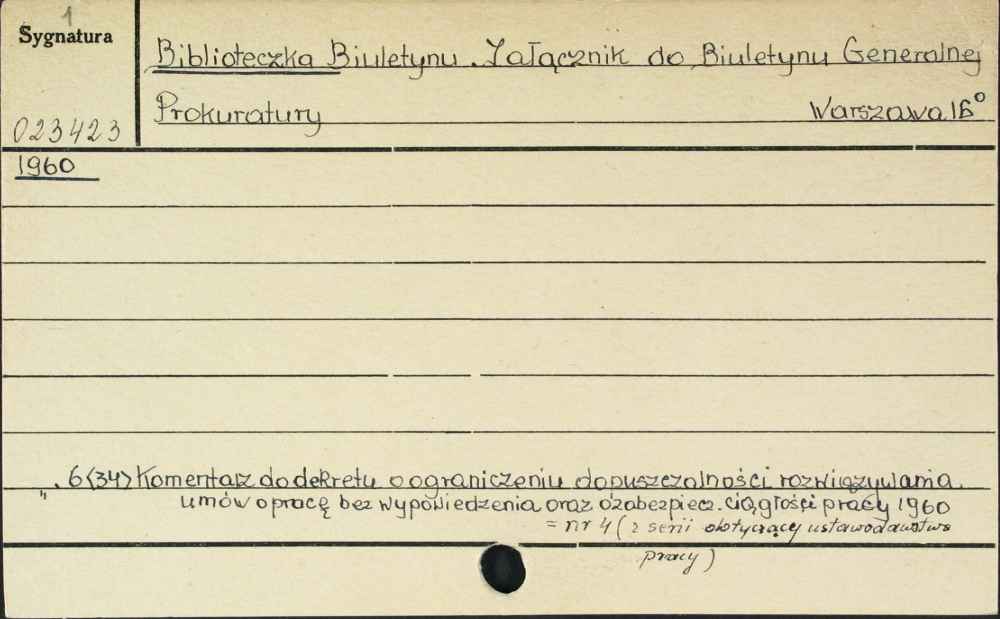 1
Sygnatura
Biblioteczka Biuletynu. Załącznik do Biuletynu Generalnej
Prokuratury Warszawa 16°
023423
1960
„ . 6<34> Komentarz do dekretu o ograniczeniu dopuszczalności rozwiązywania
umów o pracę bez wypowiedzenia oraz o zabezpiecz. ciągłości pracy 1960
= nr 4 (z serii dotyczącej ustawodawstwa
pracy)